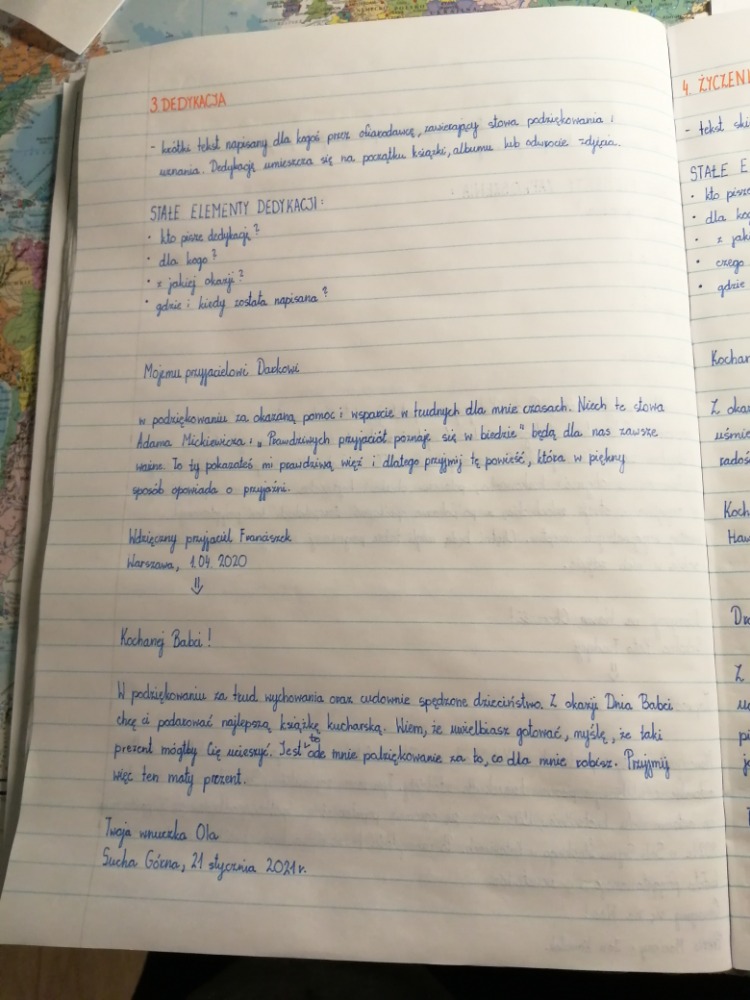 3. DEDYKACJA
- krótki tekst napisany dla kogoś przez ofiarodawcę, zawierający słowa podziękowania i
uznania. Dedykację umieszcza się na początku książki, albumu lub odwrocie zdjęcia.
STAŁE ELEMENTY DEDYKACJI:
• kto pisze dedykację?
• dla kogo?
• z jakiej okazji?
• gdzie i kiedy została napisana?
Mojemu przyjacielowi Darkowi
w podziękowaniu za okazaną pomoc i wsparcie w trudnych dla mnie czasach. Niech te słowa
Adama Mickiewicza: „Prawdziwych przyjaciół poznaje się w biedzie" będą dla nas zawsze
ważne. To ty pokazałeś mi prawdziwą więź i dlatego przyjmij tę powieść, która w piękny
sposób opowiada o przyjaźni.
Wdzięczny przyjaciel Franciszek
Warszawa, 1.04. 2020
⇓
Kochanej Babci!
W podziękowaniu za trud wychowania oraz cudownie spędzone dzieciństwo. Z okazji Dnia Babci
chcę ci podarować najlepszą książkę kucharską. Wiem, że uwielbiasz gotować, myślę, że taki
prezent mógłby Cię ucieszyć. Jest to ode mnie podziękowanie za to, co dla mnie robisz. Przyjmij
więc ten mały prezent.
Twoja wnuczka Ola
Sucha Górna, 21 stycznia 2021 r.
4. ŻYCZENI
- tekst
STAŁE E
• kto pisze
• dla
• z
• czego
• gdzie
Kochan
Z